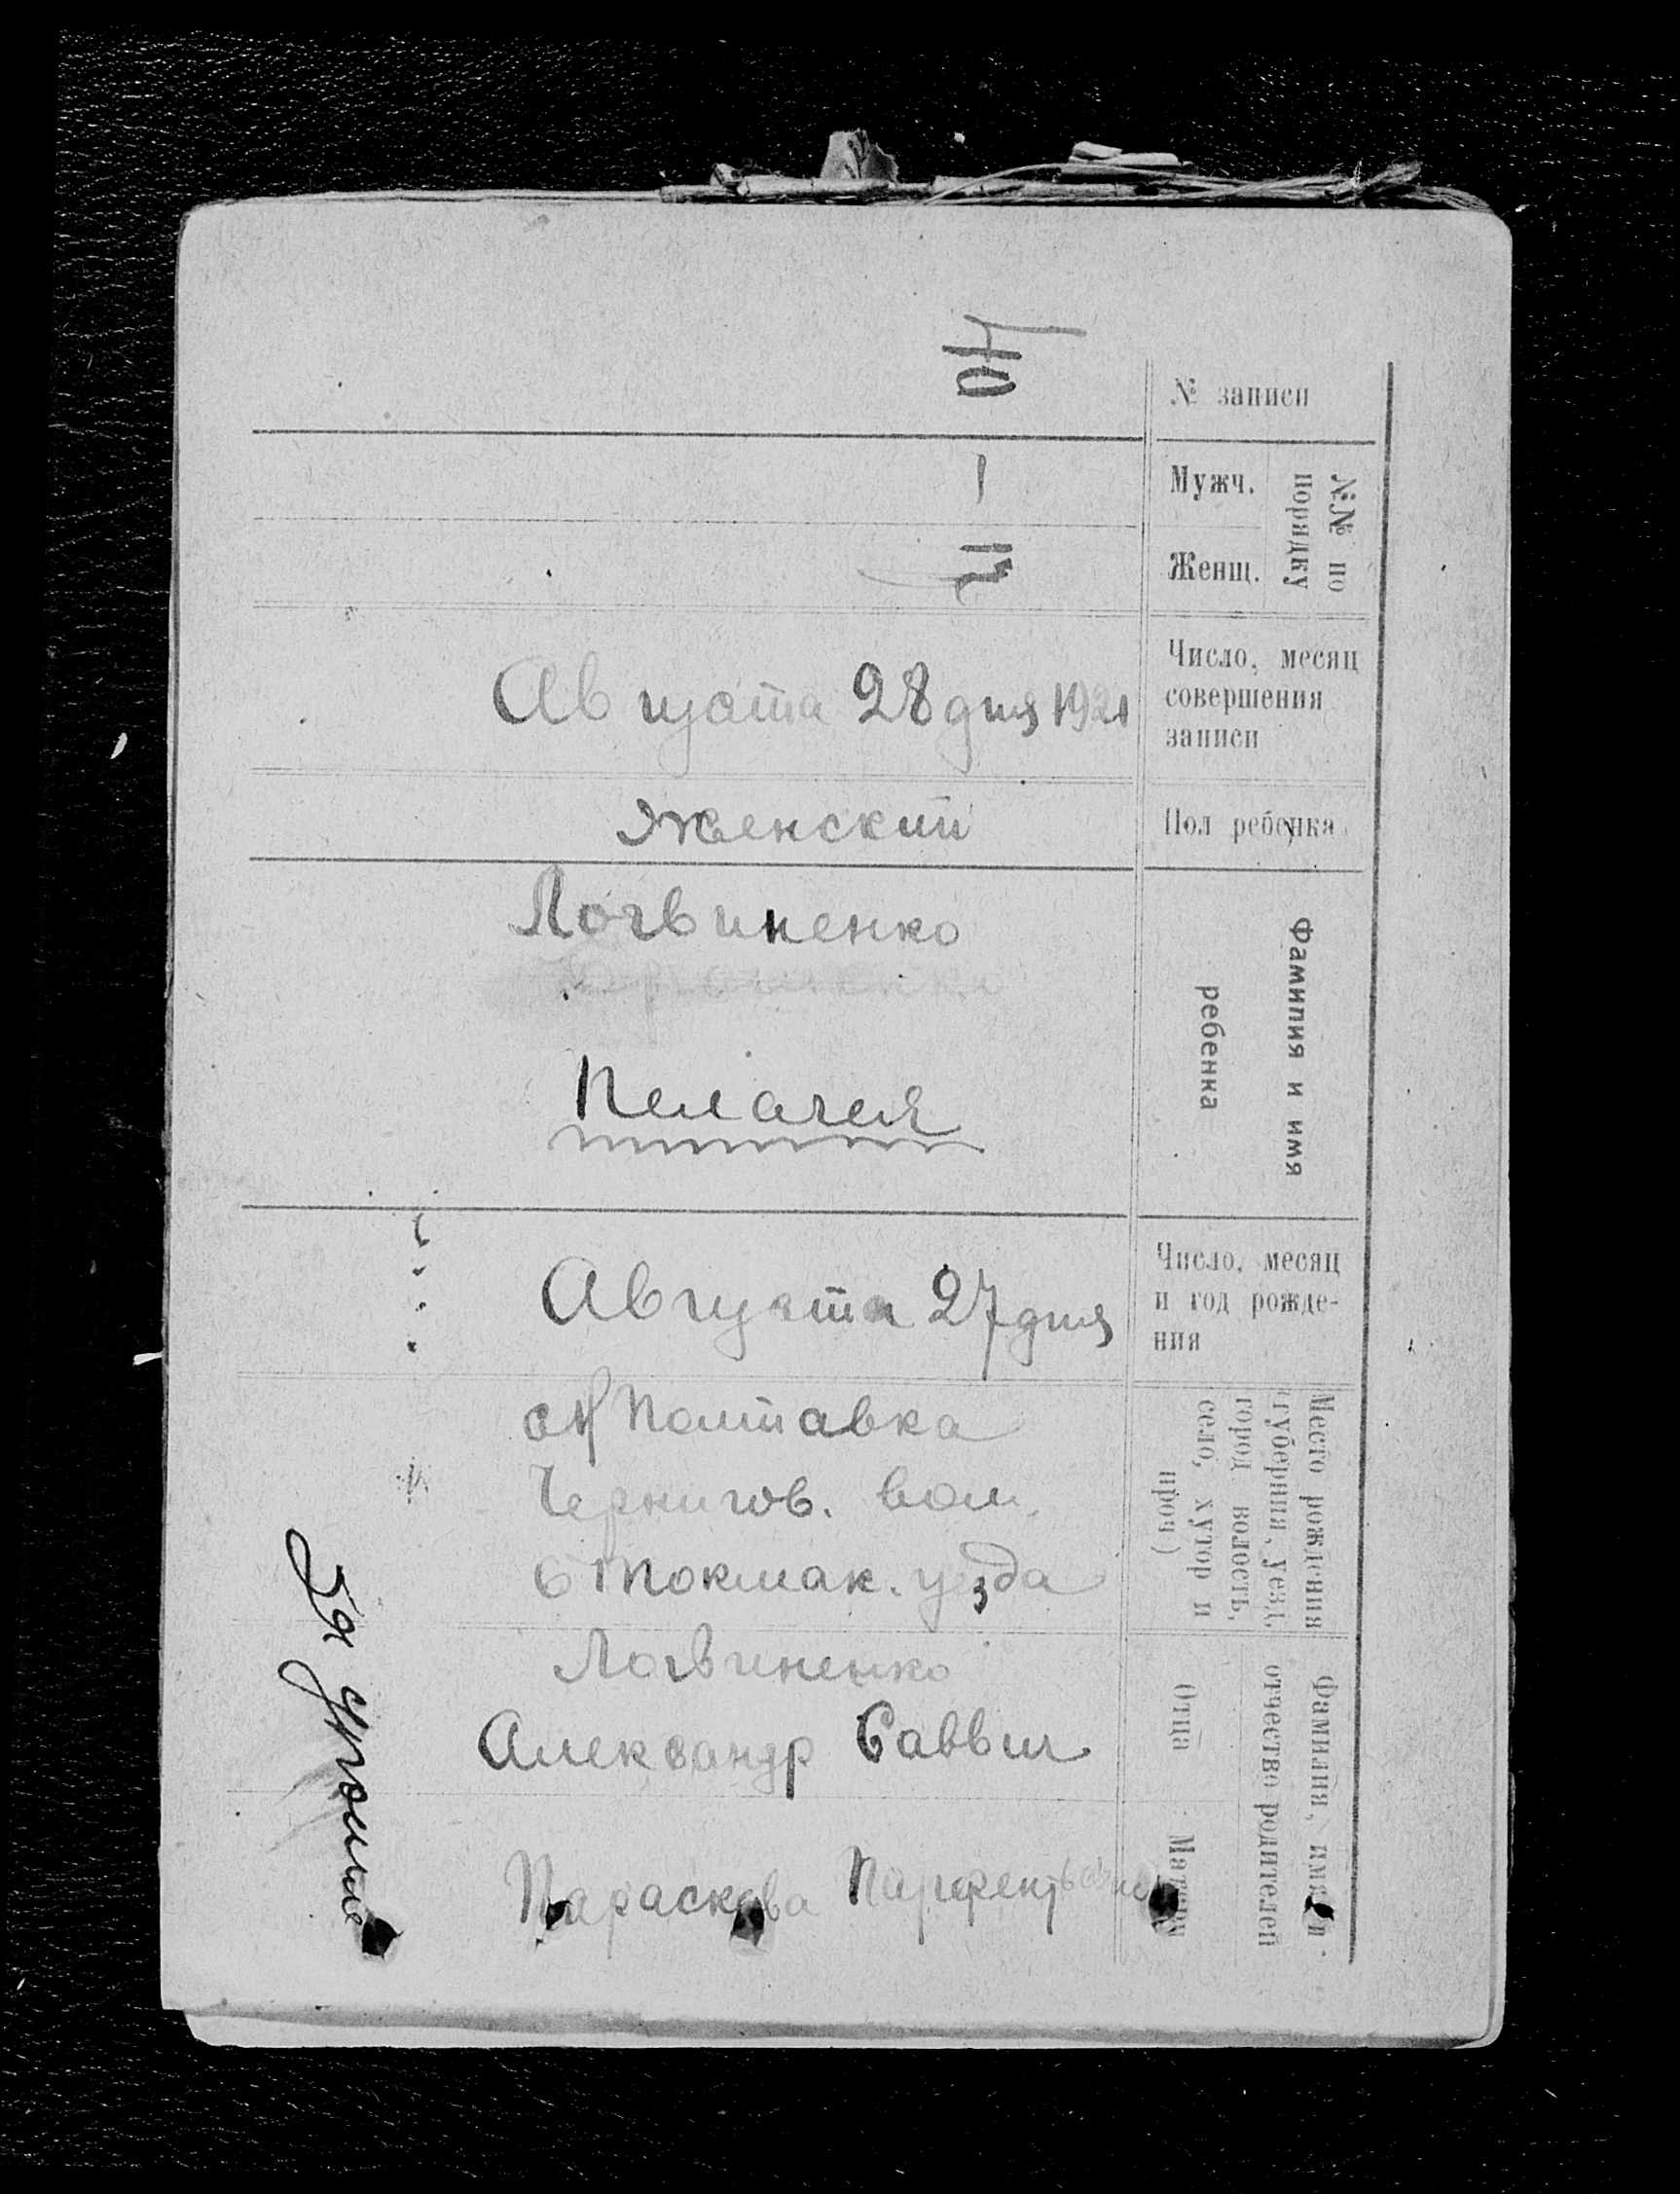 № записи
№№ по порядку
Мужч.
1
Женщ.
Число, месяц
совершения
записи
Августа 28 дня 1921
Пол ребенка
Женский
Фамилия и имя
ребенка
Логвиненко
Пелагея
Число, месяц
и год рожде-
ния
Августа 27 дня
Место рождения
(губерния, уезд,
город волость,
село, хутор и
проч)
Полтавка
Чернигов. вол.
Б Токмак. уезда
Фамилия, имя и
отчество родителей
Отца
Логвиненко
Александр Саввич
Матери
Параскева